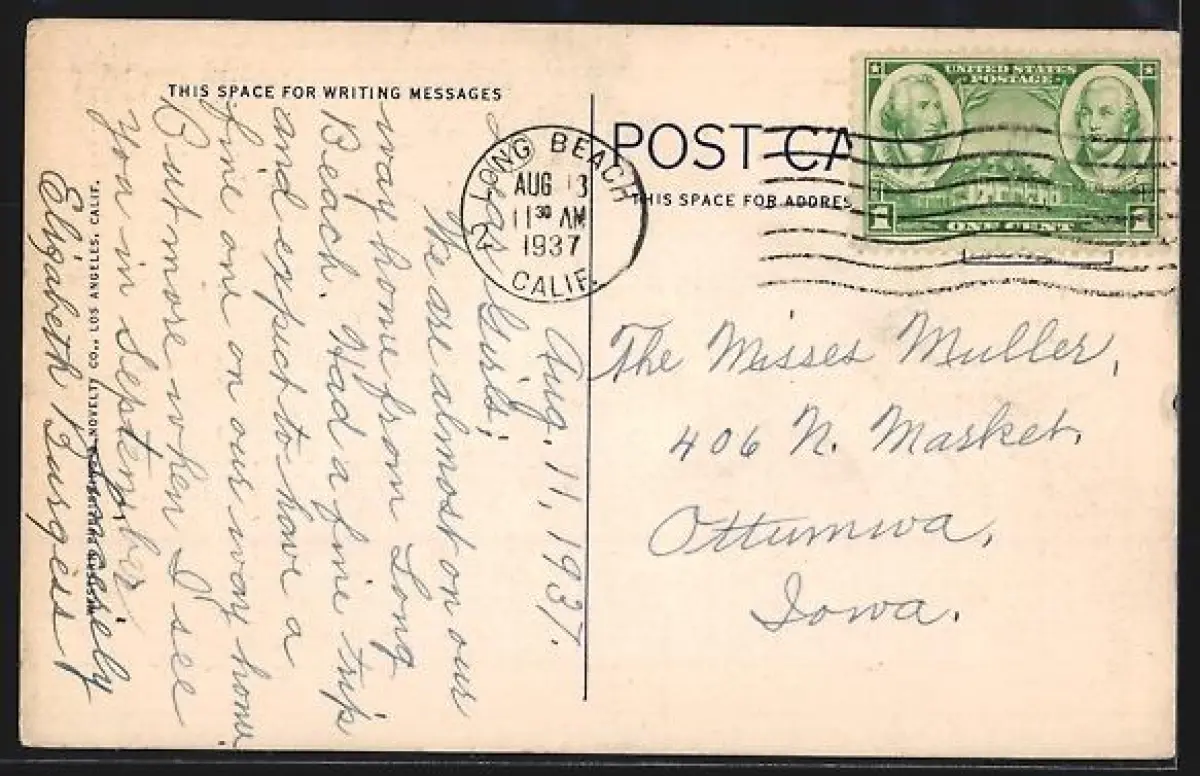 THIS SPACE FOR WRITING MESSAGES
POST CA
THIS SPACE FOR ADDRES
UNITED STATES
POSTAGE
1 ONE CENT 1
LONG BEACH
AUG 13
11 30 AM
1937
CALIF.
Aug. 11, 1937.
Dear Girls,
We are almost on our
way home from Long
Beach. Had a fine trip
and expect to have a
fine one on our way home.
But more when I see
you in September.
Sincerely
Elizabeth Burgess
The Misses Muller,
406 N. Market,
Ottumwa,
Iowa.
WESTERN PUBLISHING & NOVELTY CO., LOS ANGELES, CALIF.